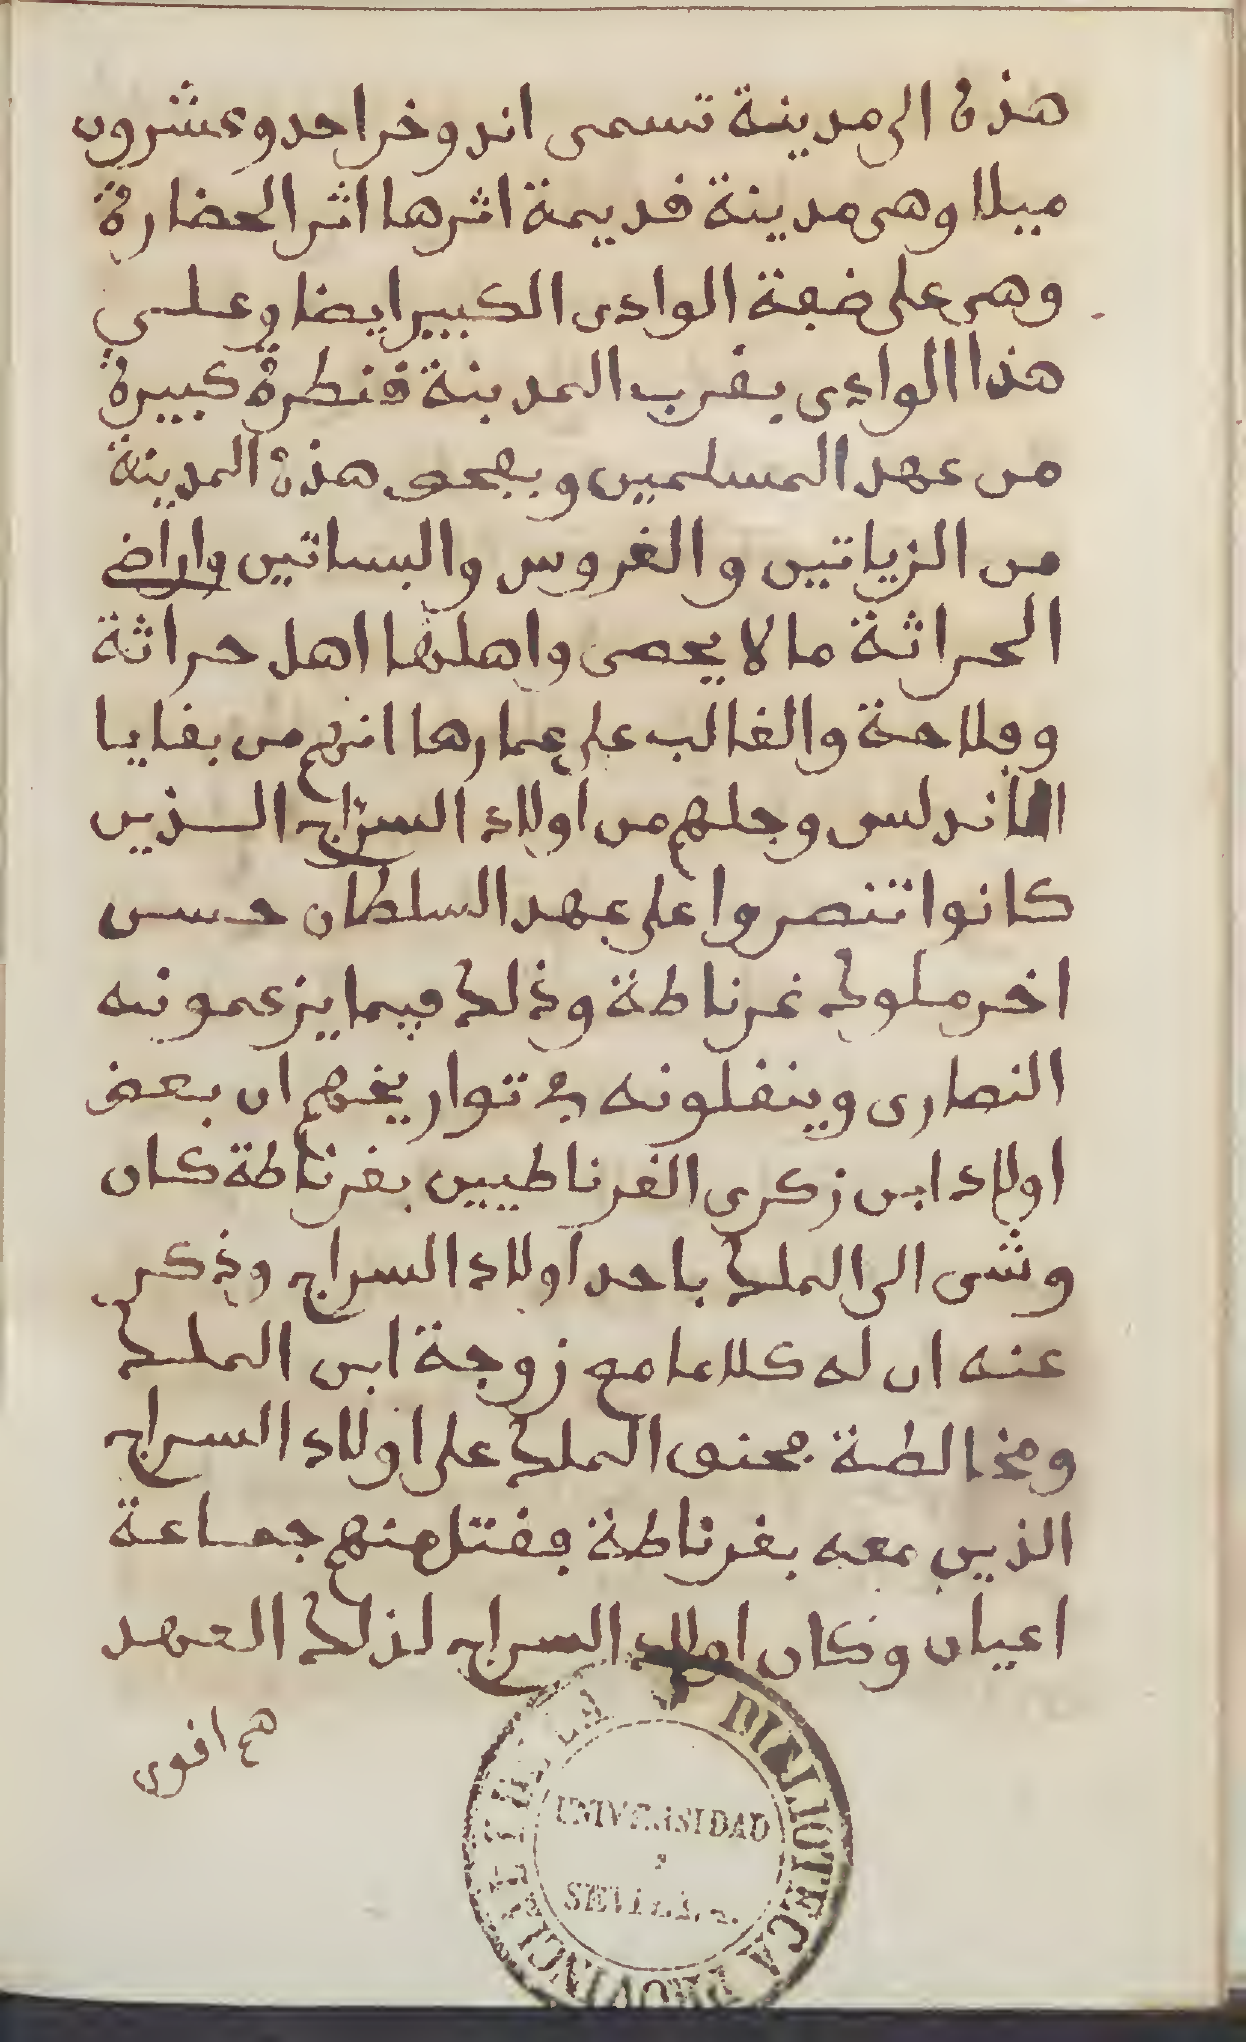 هذه الى مدينة تسمى اندوخر احد وعشرون
ميلا وهى مدينة قديمة اثرها اثر الحضارة
وهى على ضفة الوادى الكبير ايضا وعلى
هذا الوادى بقرب المدينة قنطرة كبيرة
من عهد المسلمين وبفحص هذه المدينة
من الزياتين والغروس والبساتين واراضى
الحراثة ما لا يحصى واهلها اهل حراثة
وفلاحة والغالب على عمارها انهم من بقايا
الاندلس وجلهم من اولاد السراج الذين
كانوا تنصروا على عهد السلطان حسن
اخر ملوك غرناطة وذلك فيما يزعمونه
النصارى وينقلونه فى تواريخهم ان بعض
اولاد ابن زكرى الغرناطيين بغرناطة كان
وشى الى الملك باحد اولاد السراج وذكر
عنه ان له كلاما مع زوجة ابن الملك
ومخالطة فحنق الملك على اولاد السراج
الذين معه بغرناطة فقتل منهم جماعة
اعيان وكان اولاد السراج لذلك العهد
هم اقوى
BIBLIOTECA PROVINCIAL
UNIVERSIDAD
SEVILLA